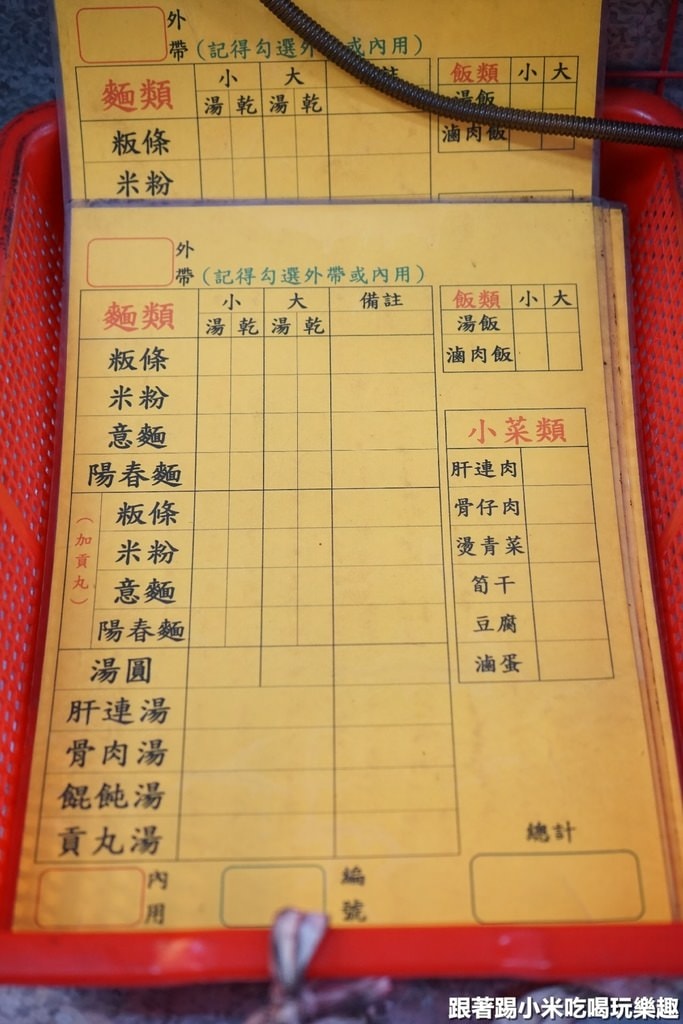 外
帶(記得勾選外帶或內用)
麵類 小 大 註
湯 乾 湯 乾
粄條
米粉
飯類 小 大
湯飯
滷肉飯
外
帶(記得勾選外帶或內用)
麵類 小 大 備註
湯 乾 湯 乾
粄條
米粉
意麵
陽春麵
(加貢丸)
粄條
米粉
意麵
陽春麵
湯圓
肝連湯
骨肉湯
餛飩湯
貢丸湯
飯類 小 大
湯飯
滷肉飯
小菜類
肝連肉
骨仔肉
燙青菜
筍干
豆腐
滷蛋
總計
內用
編號
跟著踢小米吃喝玩樂趣